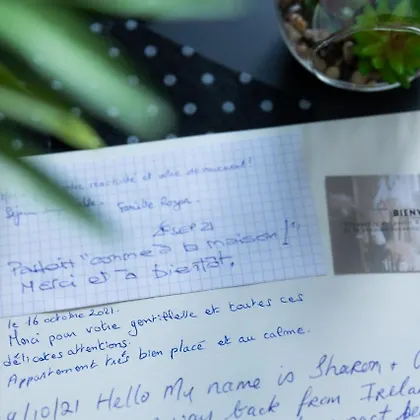 réactivité et votre dévouement!
Séjour Famille Royer.
Parfait "comme à la maison!"
Merci et à bientôt.
BIENV
le 16 octobre 2021.
Merci pour votre gentillesse et toutes ces
délicates attentions.
Appartement très bien placé et au calme.
/10/21 Hello My name is Sharon +
way back from Irela